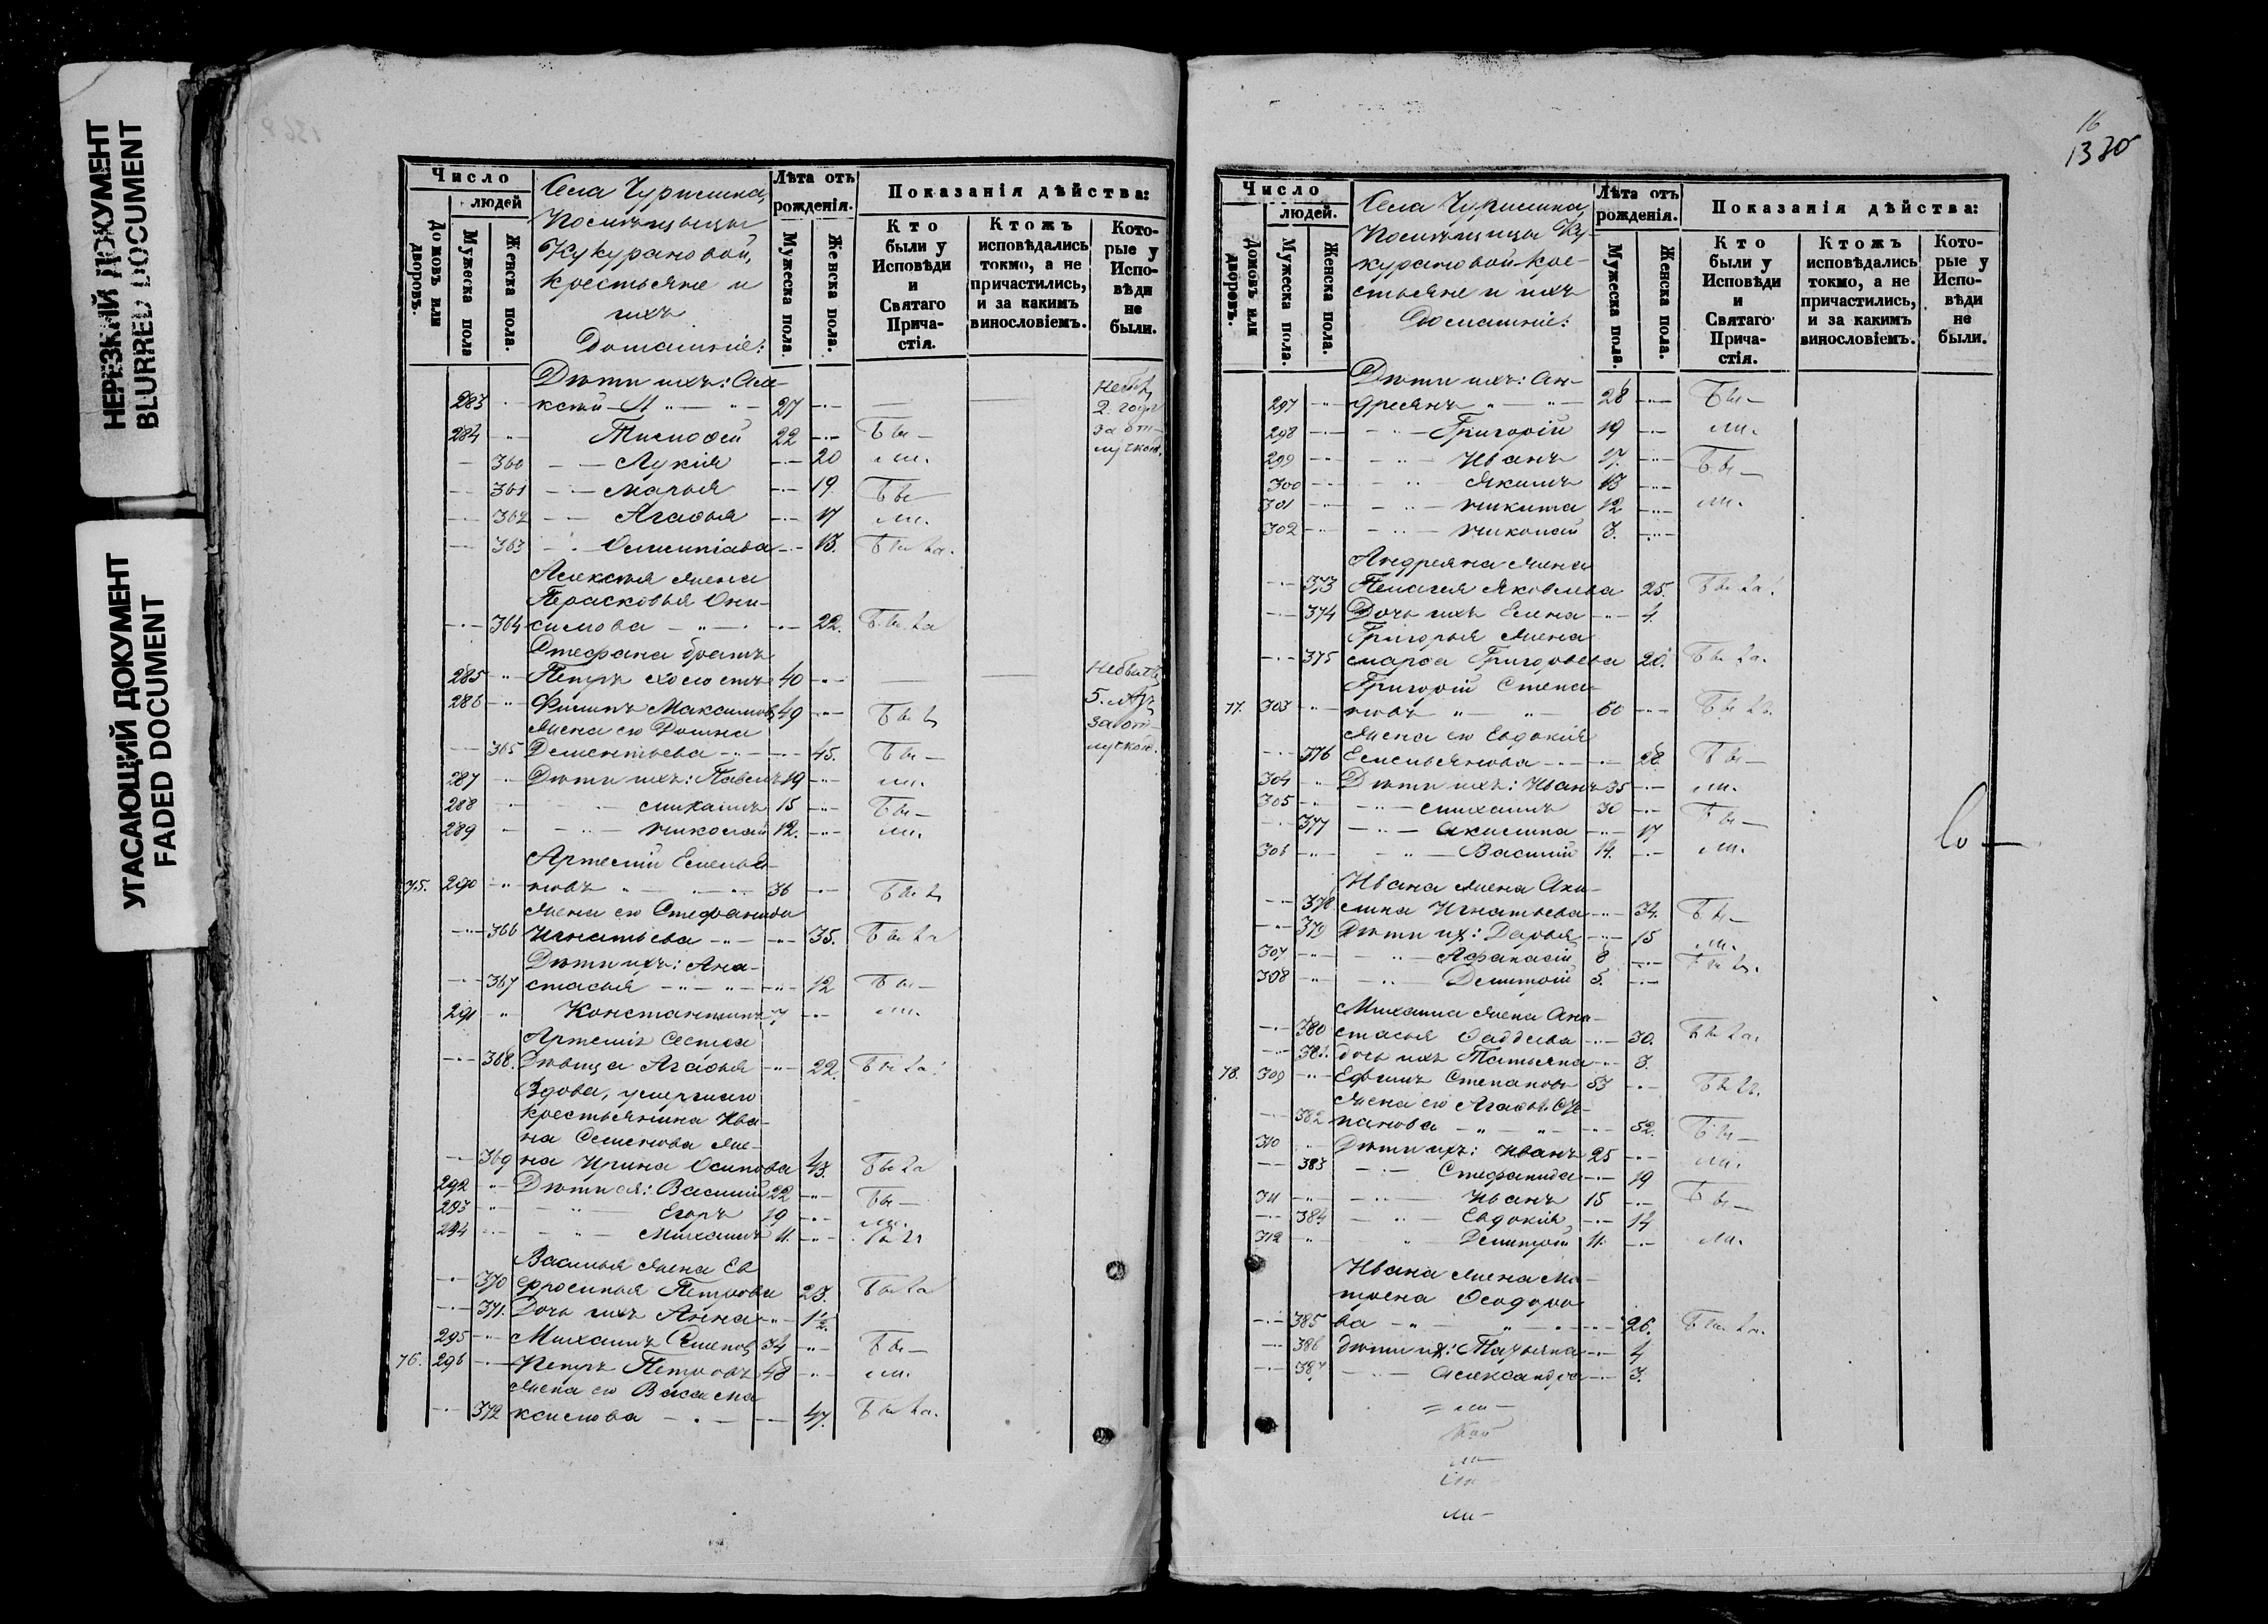 НЕРЕЗКИЙ ДОКУМЕНТ
BLURRED DOCUMENT
УГАСАЮЩИЙ ДОКУМЕНТ
FADED DOCUMENT
Число
людей
Домовъ или дворовъ.
Мужеска пола
Женска пола.
Села
Помѣщицы
Кукурановой,
крестьяне и
ихъ
Домашніе:
Лѣта отъ рожденія.
Мужеска пола.
Женска пола.
Показанія дѣйства:
Кто были у Исповѣди и Святаго Прича- стія.
Ктожъ исповѣдались токмо, а не причастились, и за какимъ винословіемъ.
Кото- рые у Испо- вѣди не были.
Дѣти ихъ: Але-
283 ксѣй 27
2. года
за от-
лучкою.
284 Тимофей 22 Бы-
360 Лукія 20 ли.
361 Марья 19 Бы
362 Агафья 17 ли.
363 13. Была.
Алексѣя жена
Парасковья Они-
364 симова 22. Была
Стефана братъ
285 Петръ холостъ 40
5. лѣтъ
за от-
лучкою.
286 Филипъ Максимовъ 49 Былъ
жена его Домна
365 Дементьева 45. Бы-
287 Дѣти ихъ: Павелъ 19 ли.
288 Михаилъ 15 Бы-
289 Николай 12. ли.
Артемій Емелья-
75. 290 новъ 36 Былъ
жена его Стефанида
366 Игнатьева 35. Была
Дѣти ихъ: Ана-
367 стасья 12 Бы-
291 Константинъ 7 ли.
Артемія Сестра
368. Дѣвица Агафья 22. Была
Вдова, умершаго
крестьянина Ива-
на Семенова же-
369 на Ирина Осипова 43. Была
292 Дѣти ея: Василій 22 Бы-
293 Егоръ 19 ли.
294 Михаилъ 11.
Василья жена Ев
370 фросинья Петрова 23. Была
371. Дочь ихъ Анна 1½.
295 Михаилъ Семеновъ 34 Бы-
76. 296 Петръ Петровъ 48 ли.
жена его Васса Ма
372 ксимова 47. Была.
16
Число
людей.
Домовъ или дворовъ.
Мужеска пола.
Женска пола.
Села
Помѣщицы Ку-
курановой кре-
стьяне и ихъ
Домашніе:
Лѣта отъ рожденія.
Мужеска пола.
Женска пола.
Показанія дѣйства:
Кто были у Исповѣди и Святаго Прича- стія.
Ктожъ исповѣдались токмо, а не причастились, и за какимъ винословіемъ.
Кото- рые у Испо- вѣди не были.
Дѣти ихъ: Ан-
297 дреянъ 28 Бы-
298 Григорій 19 ли.
299 Иванъ 17. Бы-
300 Якимъ 13
301 Никита 12 ли.
302 Николай 3.
Андреяна жена
373 Пелагея Яковлева 25. Была.
374 Дочь ихъ Елена 4.
Григорья жена
375 Марфа Григорьева 20. Была.
Григорій Степа-
77. 303 новъ 60 Былъ.
жена его Евдокія
376 Емельянова Бы-
304 Дѣти ихъ: Иванъ 35 ли.
305 Михаилъ 30 Бы-
377 Акилина 17
306 Василій 14. ли.
Ивана жена Аки-
378 лина Игнатьева 34. Бы-
379 Дѣти их: Дарья 15 ли.
307 Афанасій 8 Былъ.
308 Дмитрій 5.
Михаила жена Ана-
380 стасья Фаддеева 30. Была.
381. дочь ихъ Татьяна 8.
78. 309 Ефимъ Степановъ 53 Былъ.
жена его Агафья Сте-
382 панова 52. Бы-
310 Дѣти ихъ: Иванъ 25 ли.
383 Стефанида 19
311 Иванъ 15 Бы-
384 Евдокія 14
312 Дмитрій 11. ли.
Ивана жена Ма-
трена Феодоро
385 ва 26. Была.
386 Дѣти их: Татьяна 4
387 Александра 3.